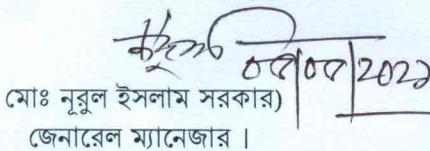 ০৫|০৫|2022
মোঃ নূরুল ইসলাম সরকার)
জেনারেল ম্যানেজার।